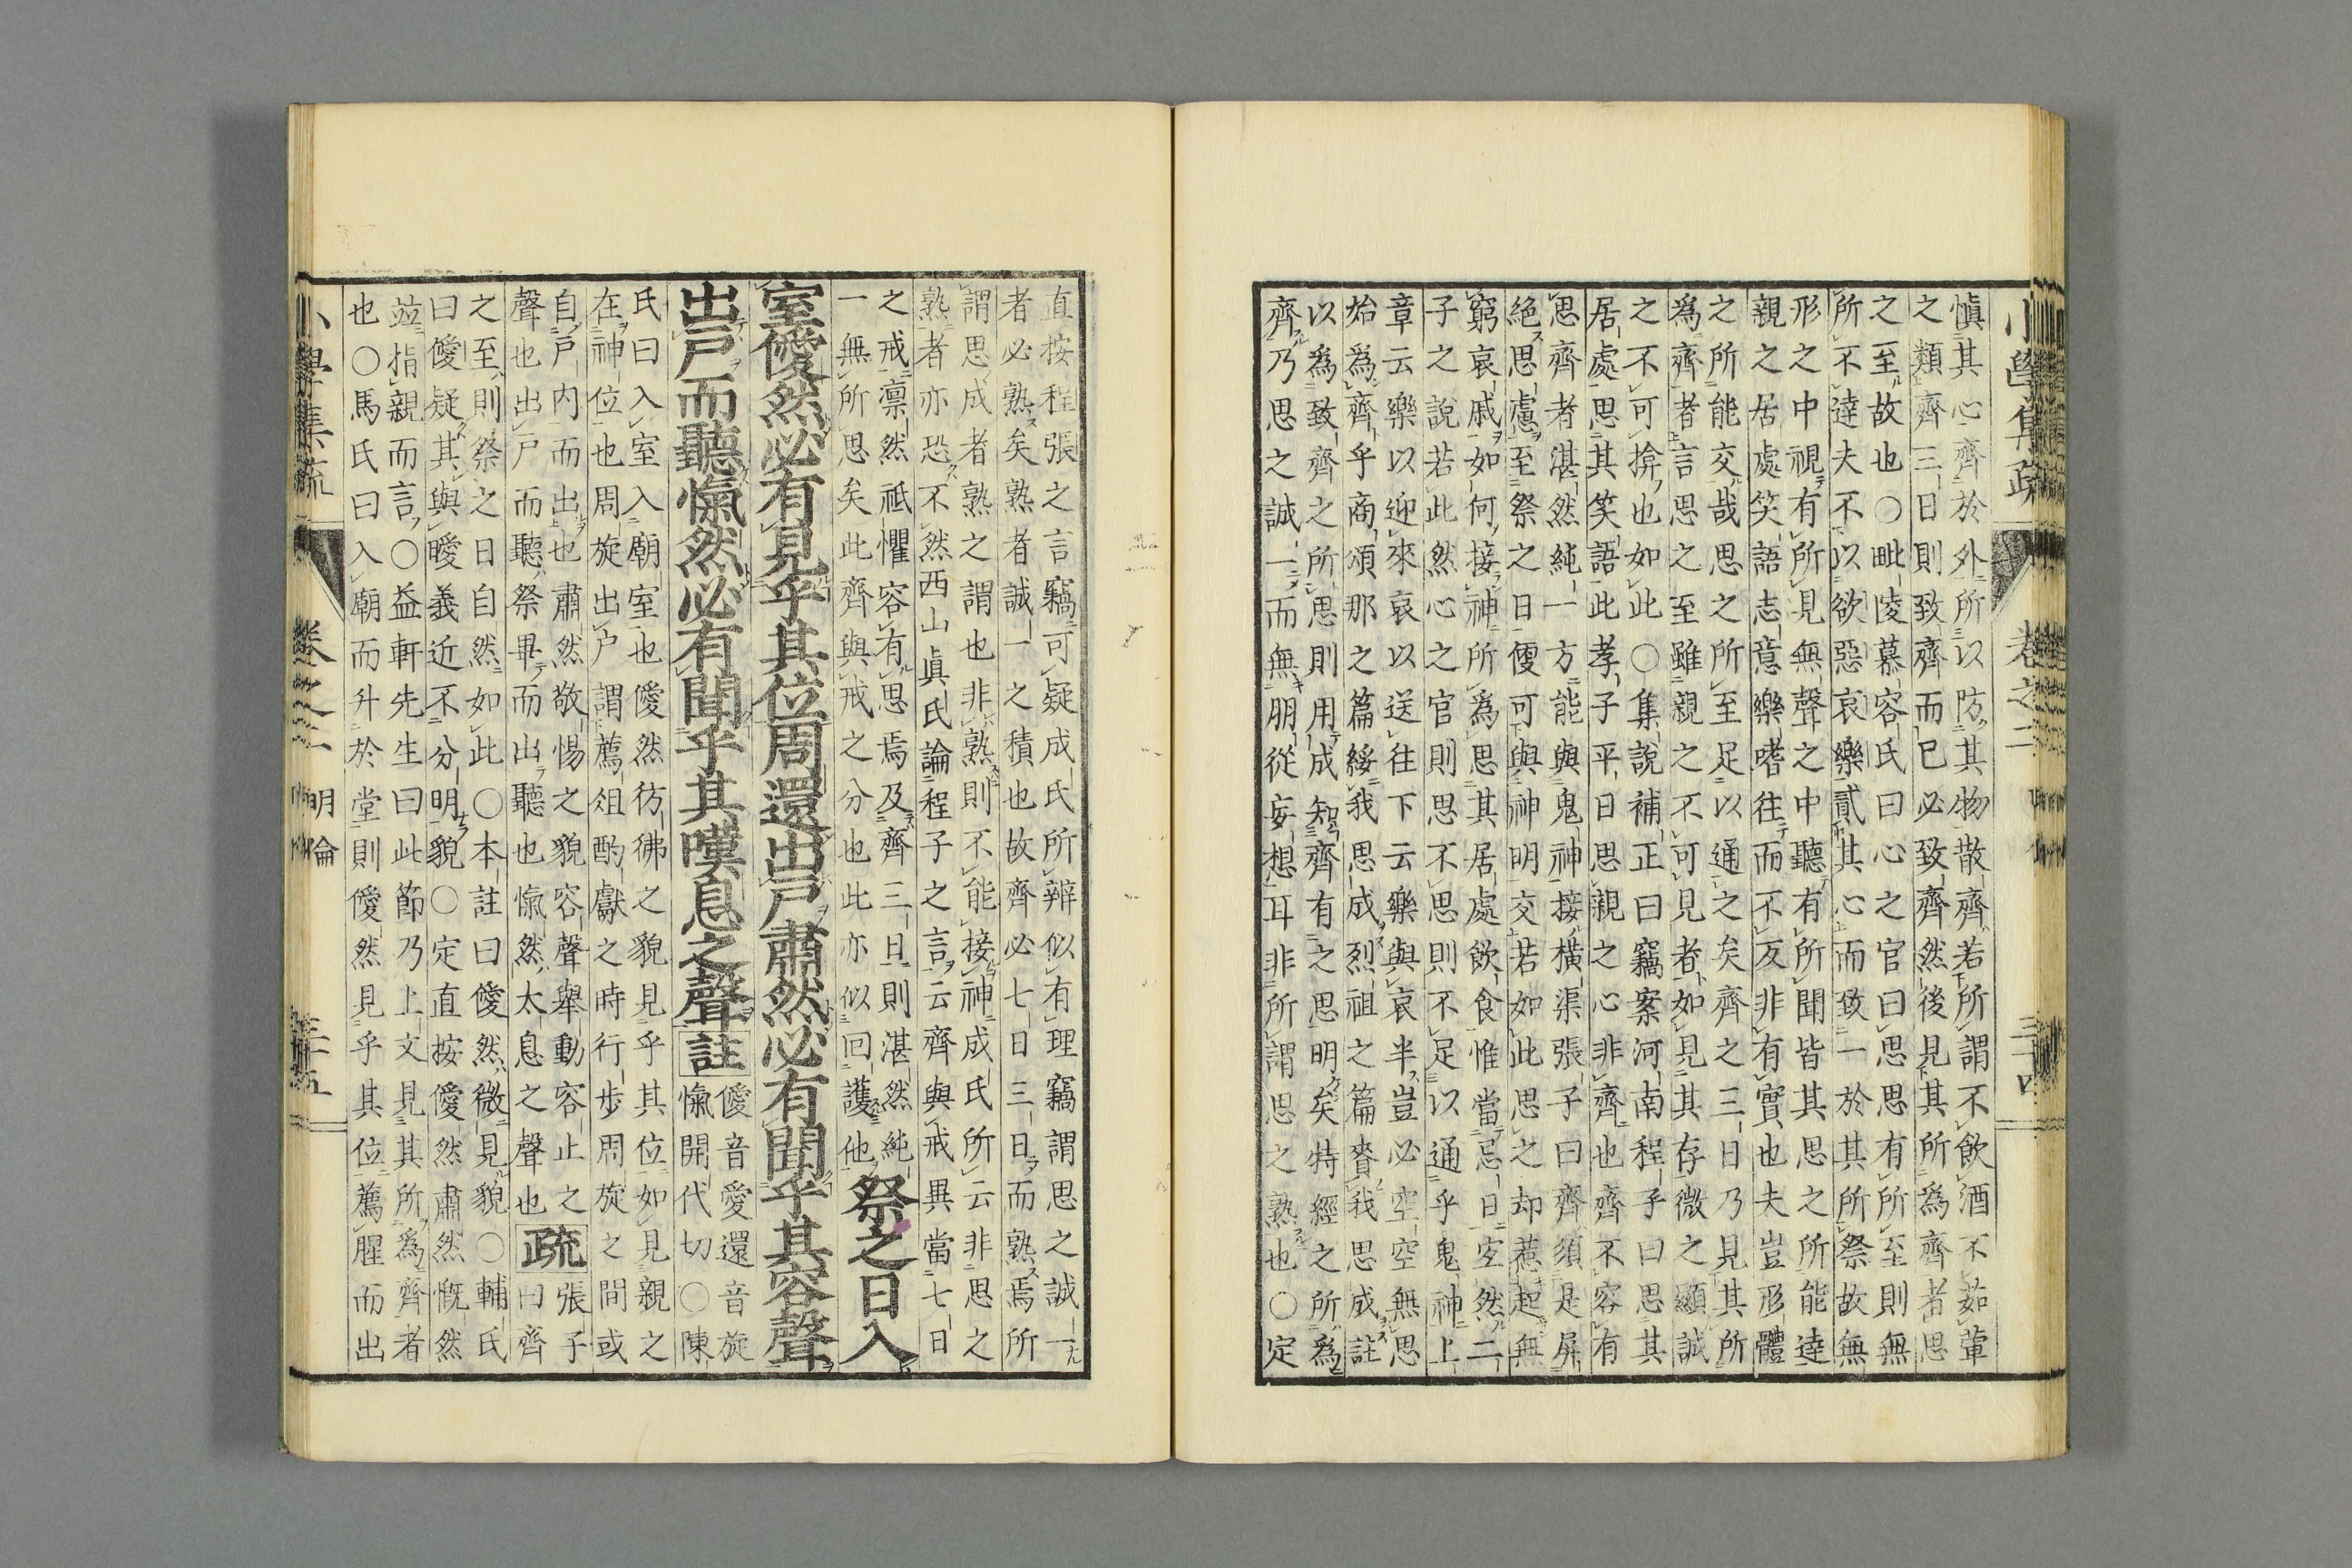 愼其心齊於外所以防其物散齊若所謂不飲酒不茹葷
之類齊三日則致齊而已必致齊然後見其所爲齊者思
之至故也○毗陵慕容氏曰心之官曰思思有所至則無
所不達夫不以欲惡哀樂貳其心而致一於其所祭故無
形之中視有所見無聲之中聽有所聞皆其思之所能達
親之居處笑語志意樂嗜往而不反非有實也夫豈形體
之所能交哉思之所至足以通之矣齊之三日乃見其所
爲齊者言思之至雖親之不可見者如見其存微之顯誠
之不可揜也如此○集說補正曰竊案河南程子曰思其
居處思其笑語此孝子平日思親之心非齊也齊不容有
思齊者湛然純一方能與鬼神接橫渠張子曰齊須是屏
絶思慮至祭之日便可與神明交若如此思之却惹起無
窮哀戚如何接神所爲思其居處飲食惟當忌日空然二
子之說若此然心之官則思不思則不足以通乎鬼神上
章云樂以迎來哀以送往下云樂與哀半豈必空空無思
始爲齊乎商頌那之篇綏我思成烈祖之篇賚我思成註
以爲致齊之所思則用成知齊有之思明矣特經之所爲
齊乃思之誠一而無朋從妄想耳非所謂思之熟也○定
小學集疏 卷之二 三十四
直按程張之言竊可疑成氏所辨似有理竊謂思之誠一
者必熟矣熟者誠一之積也故齊必七日三日而熟焉所
謂思成者熟之謂也非熟則不能接神成氏所云非思之
熟者亦恐不然西山眞氏論程子之言云齊與戒異當七日
之戒凛然祗懼容有思焉及齊三日則湛然純
一無所思矣此齊與戒之分也此亦似回護他祭之日入
室僾然必有見乎其位周還出戸肅然必有聞乎其容聲
出戸而聽愾然必有聞乎其嘆息之聲註僾音愛還音旋
愾開代切○陳
氏曰入室入廟室也僾然彷彿之貌見乎其位如見親之
在神位也周旋出戸謂薦俎酌獻之時行步周旋之間或
自戸内而出也肅然敬惕之貌容聲舉動容止之
聲也出戸而聽祭畢而出聽也愾然太息之聲也疏張子
曰齊
之至則祭之日自然如此○本註曰僾然微見貌○輔氏
曰僾疑其與曖義近不分明貌○定直按僾然肅然慨然
竝指親而言○益軒先生曰此節乃上文見其所爲齊者
也○馬氏曰入廟而升於堂則僾然見乎其位薦腥而出
小學集疏 卷之二 明倫 三十五